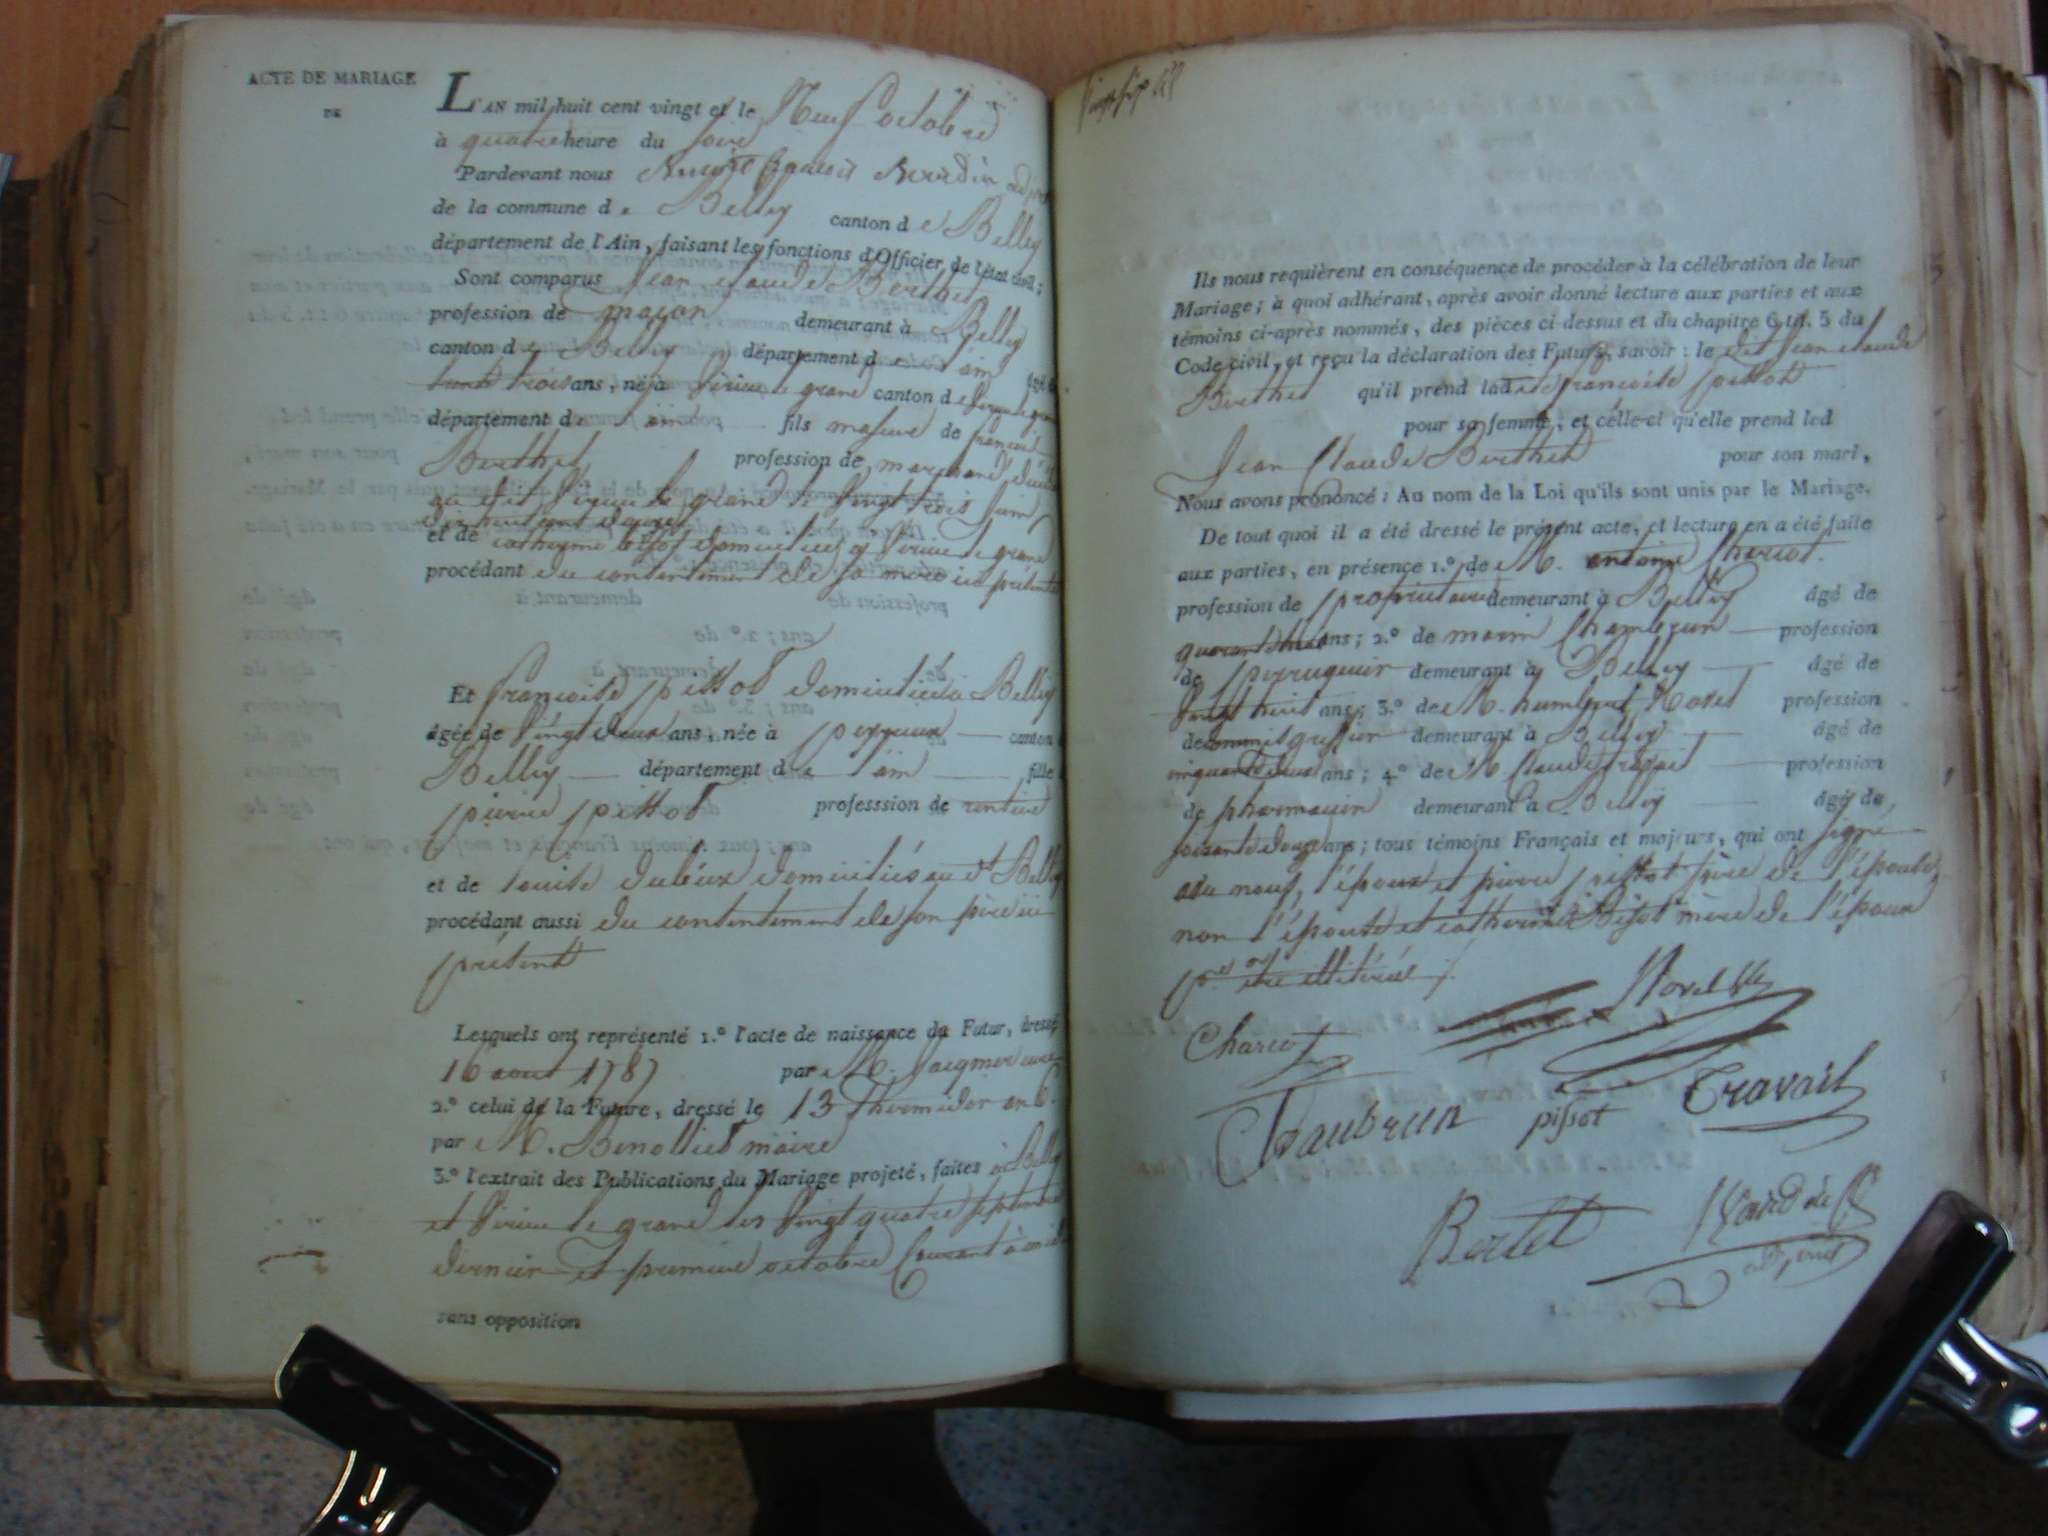 ACTE DE MARIAGE
DE
L'AN mil huit cent vingt et le Neuf octobre
à quatre heure du soir
Pardevant nous François adjoint
de la commune de Belley canton de Belley
département de l'Ain, faisant les fonctions d'Officier de l'état civil;
Sont comparus Jean claude Berthet
profession de maçon demeurant à Belley
canton de Belley département de l'ain âgé de
trente trois ans, né à Virieu le grand canton de Virieu le grand
département de l'ain fils majeur de françois
Berthet profession de marchand décédé
au dit Virieu le grand le vingt trois juin
et de catherine bizot domiciliée à Virieu le grand
procédant du consentement de sa mère ici présente
Et françoise pittot domiciliée à Belley
âgée de vingt deux ans, née à peyrieux canton
Belley département de l'ain fille
pierre pittot professsion de rentier
et de Louise domiciliés au dt Belley
procédant aussi du contentement de son père ici
présent
Lesquels ont représenté 1.º l'acte de naissance du Futur, dressé
16 aout 1787 par M. curé
2.º celui de la Future, dressé le 13 Thermidor an 6
par M. maire
3.º l'extrait des Publications du Mariage projeté, faites à Belley
et Virieu le grand les vingt quatre septembre
dernier et premier octobre Courant à midi
sans opposition
Ils nous requièrent en conséquence de procéder à la célébration de leur
Mariage; à quoi adhérant, après avoir donné lecture aux parties et aux
témoins ci-après nommés, des pièces ci dessus et du chapitre 6 tit. 5 du
Code civil, et reçu la déclaration des Futurs, savoir: le dit Jean claude
Berthet qu'il prend ladite françoise pittot
pour sa femme; et celle-ci qu'elle prend led
Jean Claude Berthet pour son mari,
Nous avons prononcé: Au nom de la Loi qu'ils sont unis par le Mariage.
De tout quoi il a été dressé le présent acte, et lecture en a été faite
aux parties, en présence 1.º de M. antoine Charcot
profession de propriétaire demeurant à Belley âgé de
ans; 2.º de profession
de perruquier demeurant à Belley âgé de
vingt huit ans; 3.º de M. humbert profession
de commis greffier demeurant à Belley âgé de
cinquante deux ans; 4.º de M. Claude travail profession
de pharmacien demeurant à Belley âgé de
soixante douze ans; tous témoins Français et majeurs, qui ont signé
avec nous, l'époux et pierre pittot père de l'épouse,
non l'épouse et catherine Bizot mère de l'époux
pr être illitérées
Charcot
pissot
Travail
Bertet
adjoint